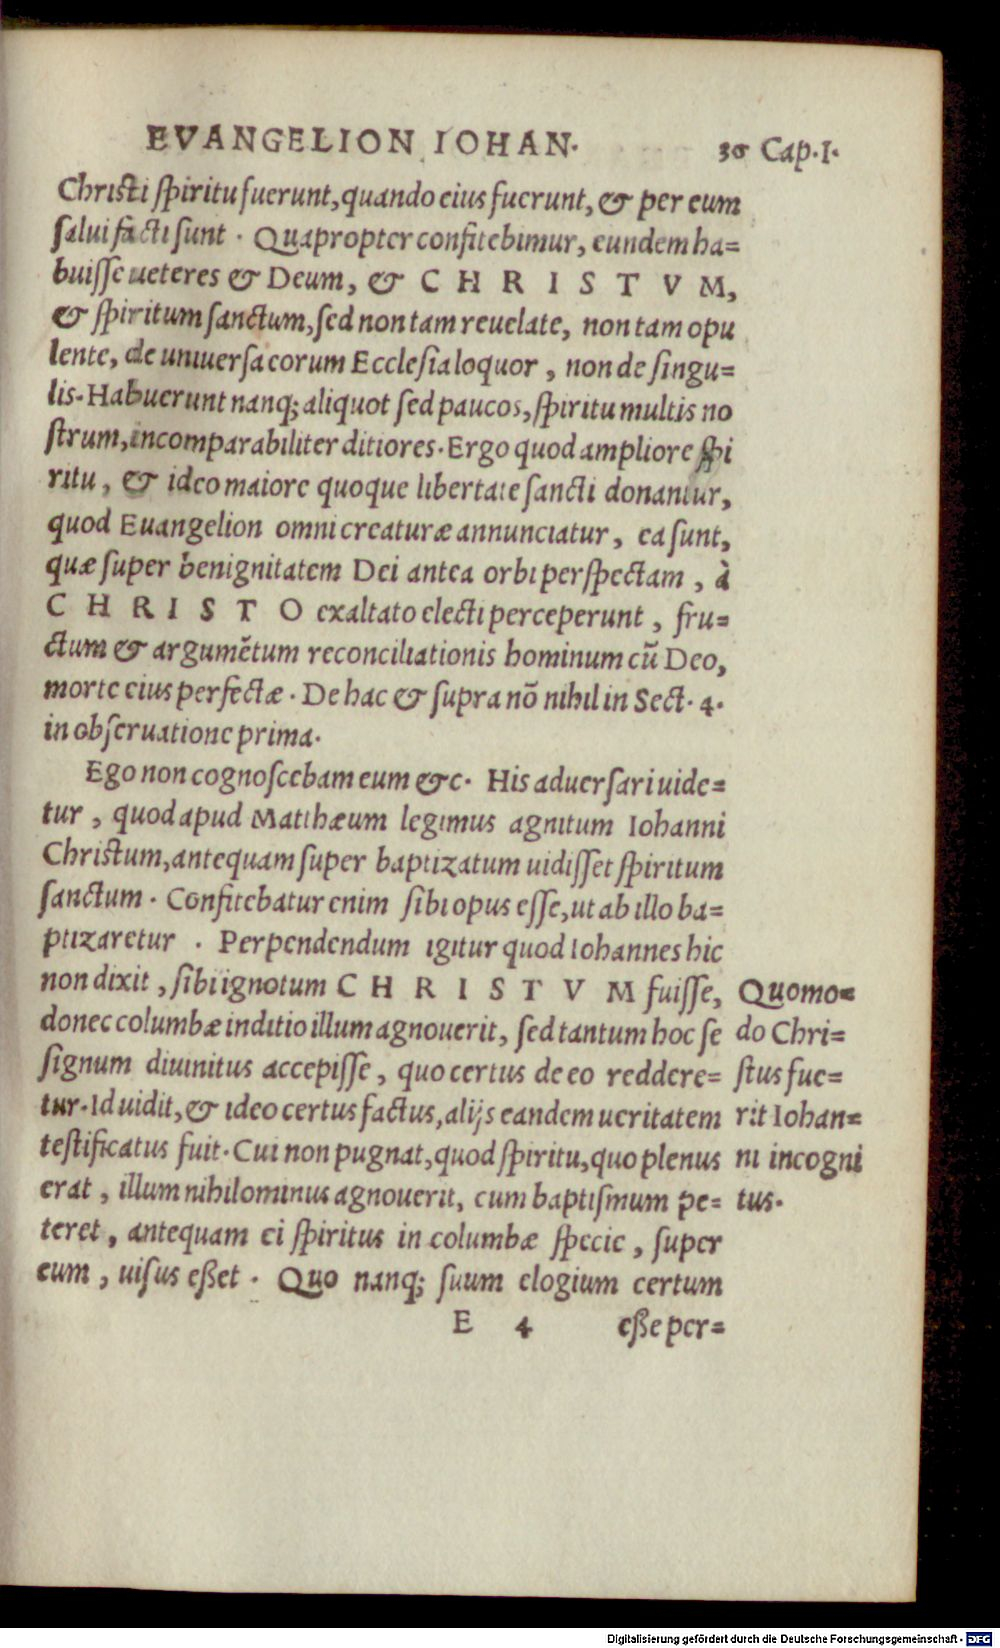 EVANGELION IOHAN. 36 Cap.I.
Christi spiritu fuerunt, quando eius fuerunt, & per eum
salui facti sunt. Quapropter confitebimur, eundem ha=
buisse ueteres & Deum, & CHRISTVM,
& spiritum sanctum, sed non tam reuelate, non tam opu
lente, de uniuersa eorum Ecclesia loquor, non de singu=
lis. Habuerunt nanq; aliquot sed paucos, spiritu multis no
strum, incomparabiliter ditiores. Ergo quod ampliore spi
ritu, & ideo maiore quoque libertate sancti donantur,
quod Euangelion omni creaturæ annunciatur, ea sunt,
quæ super benignitatem Dei antea orbi perspectam, à
CHRISTO exaltato electi perceperunt, fru=
ctum & argumētum reconciliationis hominum cū Deo,
morte eius perfectæ. De hac & supra nō nihil in Sect. 4.
in obseruatione prima.
Ego non cognoscebam eum &c. His aduersari uide=
tur, quod apud Matthæum legimus agnitum Iohanni
Christum, antequam super baptizatum uidisset spiritum
sanctum. Confitebatur enim sibi opus esse, ut ab illo ba=
ptizaretur. Perpendendum igitur quod Iohannes hic
non dixit, sibi ignotum CHRISTVM fuisse,
donec columbæ inditio illum agnouerit, sed tantum hoc se
signum diuinitus accepisse, quo certus de eo reddere=
tur. Id uidit, & ideo certus factus, alijs eandem ueritatem
testificatus fuit. Cui non pugnat, quod spiritu, quo plenus
erat, illum nihilominus agnouerit, cum baptismum pe=
teret, antequam ei spiritus in columbæ specie, super
eum, uisus eßet. Quo nanq; suum elogium certum
E 4 eße per=
Quomo=
do Chri=
stus fue=
rit Iohan=
ni incogni
tus.
Digitalisierung gefördert durch die Deutsche Forschungsgemeinschaft - DFG